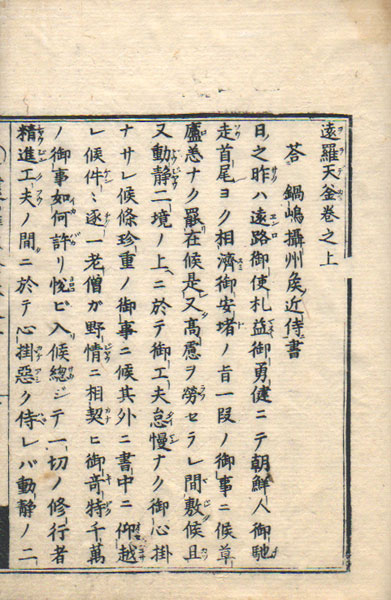 遠羅天釜巻之上
答 鍋嶋攝州矦近侍書
日之昨ハ遠路御使札益御勇健ニテ朝鮮人御馳
走首尾ヨク相濟御安堵ノ旨一段ノ御事ニ候草
廬恙ナク罷在候是又髙慮ヲ勞セラレ間敷候且
又動静二境ノ上ニ於テ御工夫怠慢ナク御心掛
ナサレ候條珍重ノ御事ニ候其外ニ書中ニ仰越
レ候件〻逐一老僧ガ野情ニ相契ヒ御竒特千萬
ノ御事如何許リ悦ビ入候總ジテ一切ノ修行者
精進工夫ノ間ニ於テ心掛惡ク侍レバ動静ノ二